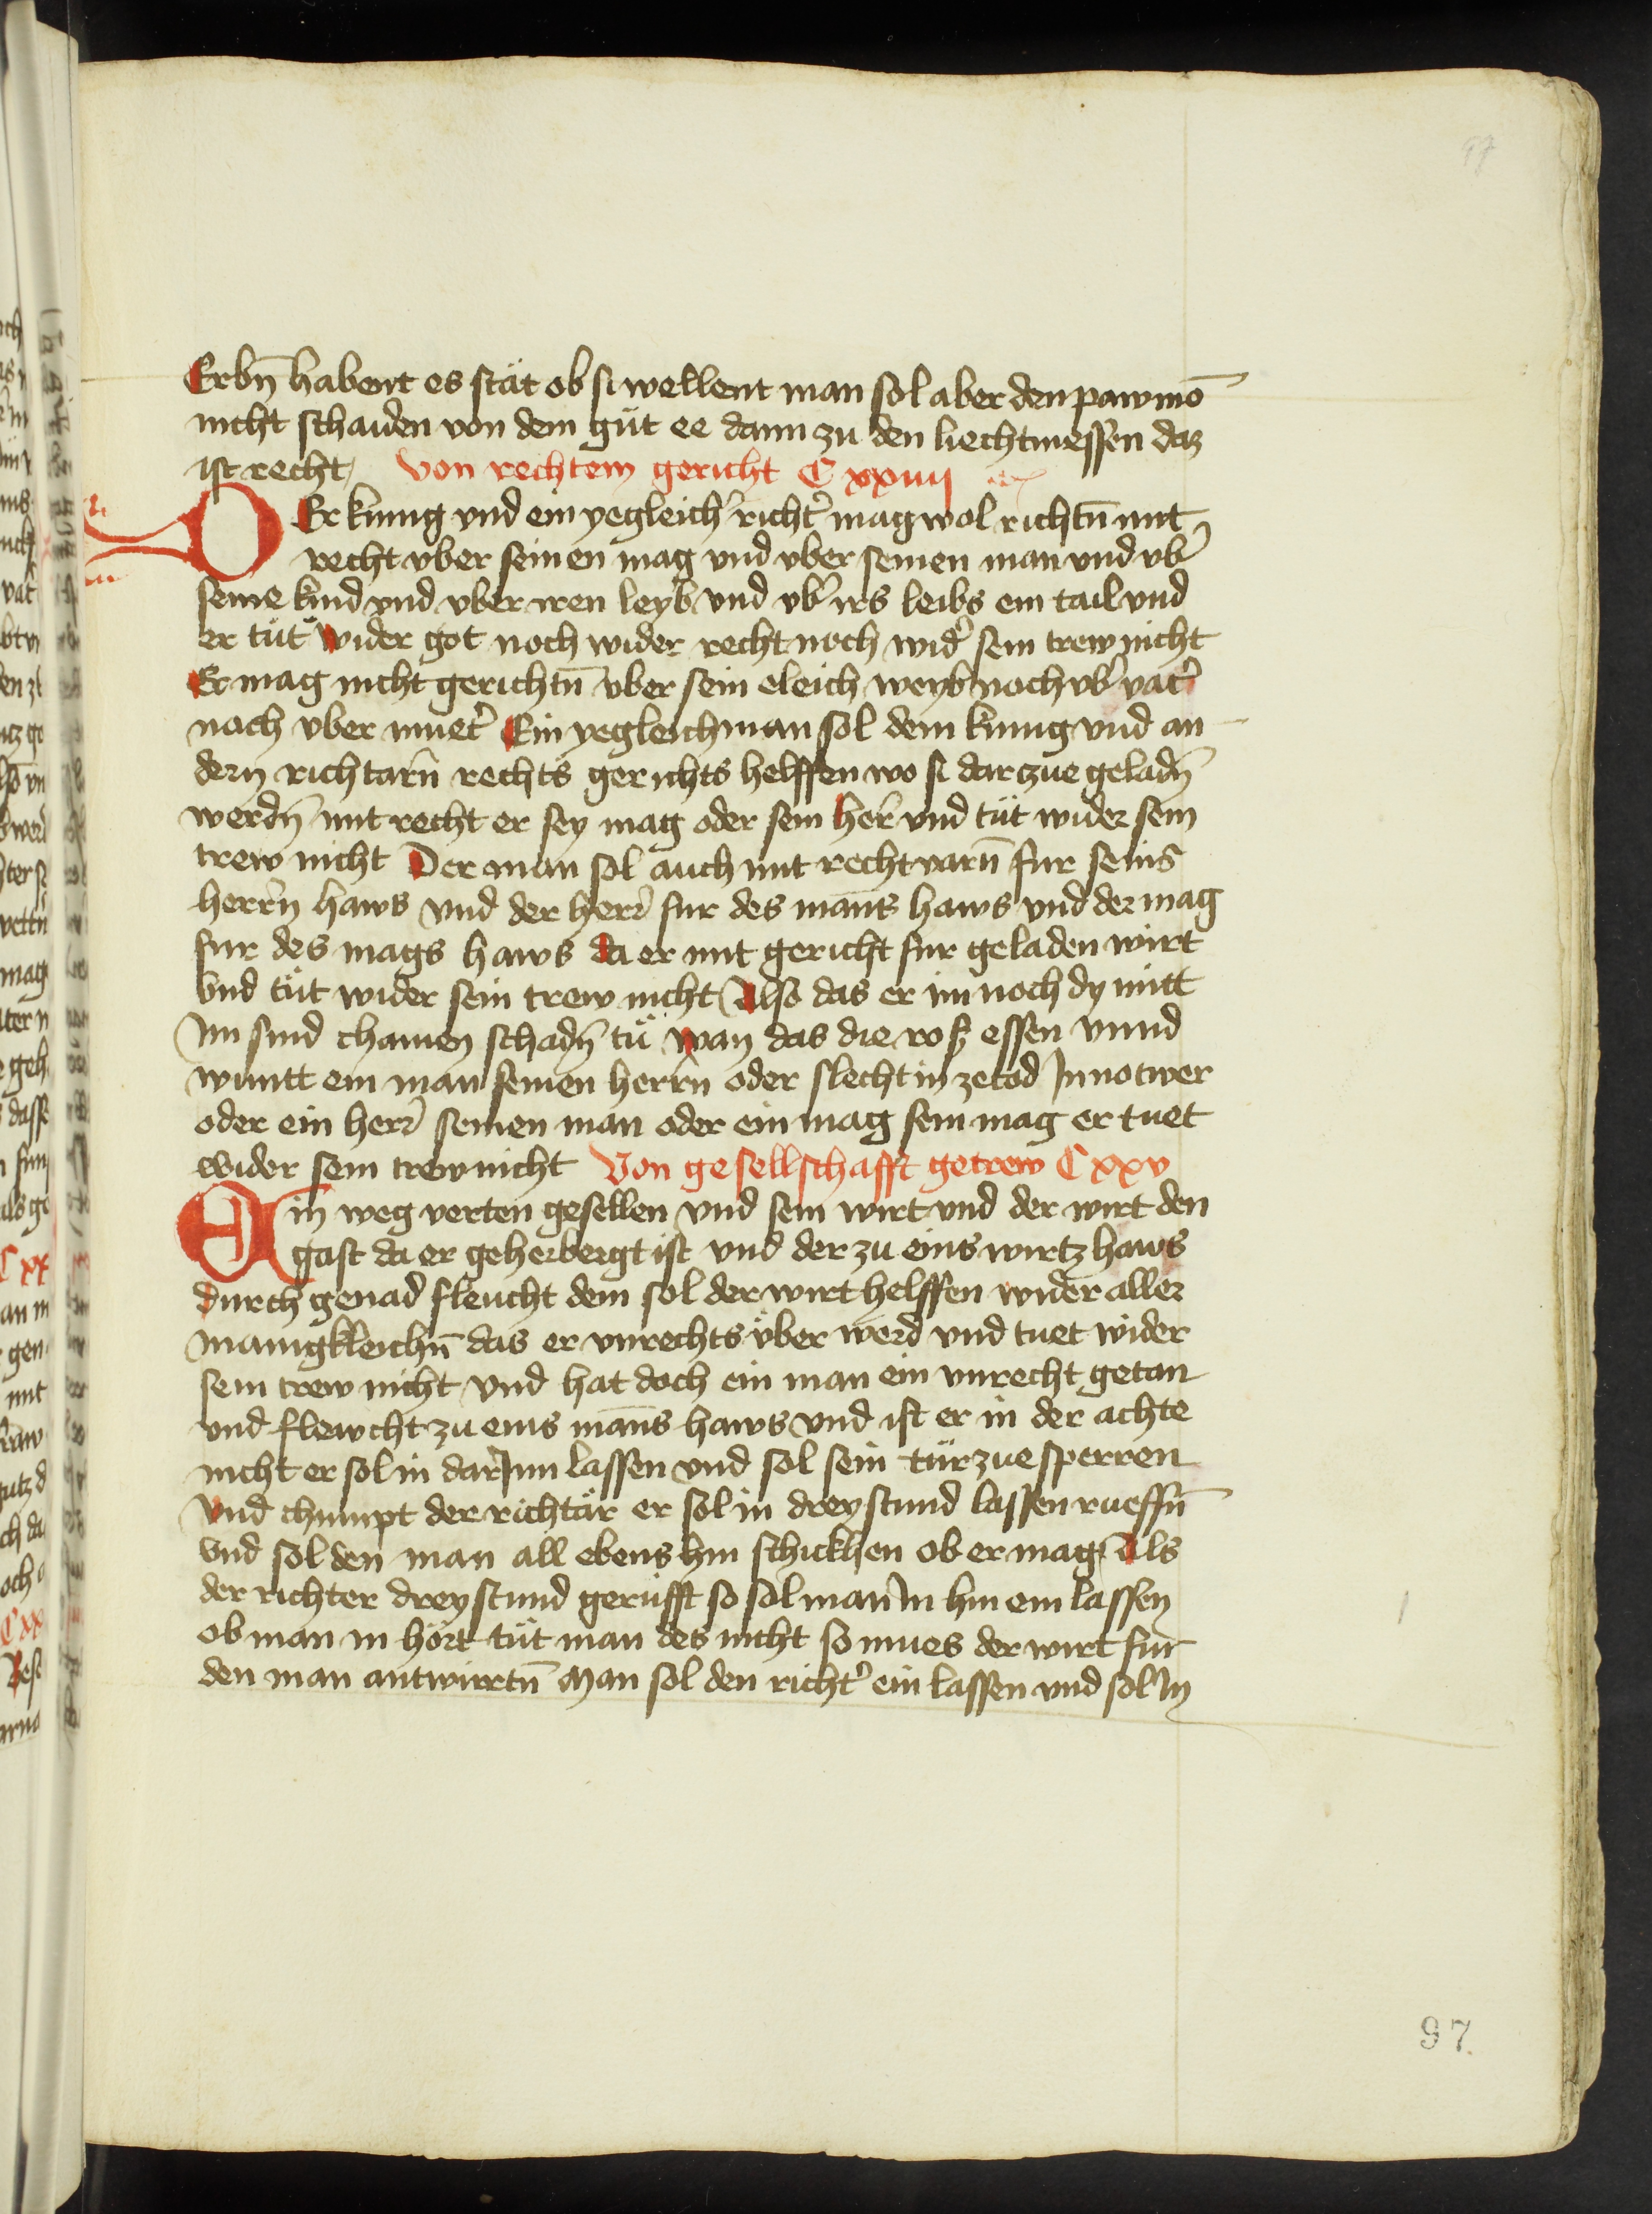 97
Erbn̄ habent es stät ob si wellent man sol aber den pawmō
nicht schaiden von dem güt ee dann zu den liechtmessen daz
ist recht Von rechtem gericht C xxiiij
DEr kunig vnd ein yegleich' richt' mag wol richtn̄ mit
recht vber seinen mag vnd vber seinen man vnd vb'
seine kind vnd vber iren leyb vnd vb' irs leibs ein tail vnd
er tüt wider got noch wider recht noch wid' sein trew nicht
Er mag nicht gerichtn̄ vber sein eleich weyb noch vb' vat'
noch vber muet' Ein yegleich man sol dem kunig vnd an
dern richtarn̄ rechts gerichts helffen wo si darzue geladn̄
werdn̄ mit recht er sey mag oder sein her' vnd tüt wider sein
trew nicht Der man sol auch mit recht varn̄ fur seins
herrn haws vnd der herr' fur des mans haws vnd der mag
fur des mags haws da er mit gericht fur geladen wirt
Vnd tüt wider sein trew nicht Also das er im noch dy mitt
Im sind chamen schadn̄ tü wan das die ross essen vnnd
wuntt ein man seinen herrn oder slecht in ze tod In notwer
oder ein herr' seinen man oder ein mag sein mag er tuet
wider sein trew nicht Von gesellschafft getrew C xxv
Ein weg verten gesellen vnd sein wirt vnd der wirt den
gast da er geherbergt ist vnd der zu eins wirtz haws
durch genad fleucht dem sol der wirt helffen wider aller
manigkleichn̄ das er vnrechts vber werd vnd tuet wider
sein trew nicht vnd hat doch ein man ein vnrecht getan
vnd flewcht zu eins mans haws vnd ist er in der achte
nicht er sol in darInn lassen vnd sol sein tür zue sperren
Vnd chumpt der richtär er sol in drey stund lassen rueffn̄
Vnd sol den man all ebens hin schickhen ob er mag Als
der richter drey stund gerüfft so sol man In hin ein lassen
ob man in hört tüt man des nicht so mues der wirt fur
den man antwirrtn̄ Man sol den richt' ein lassen vnd sol In
97.